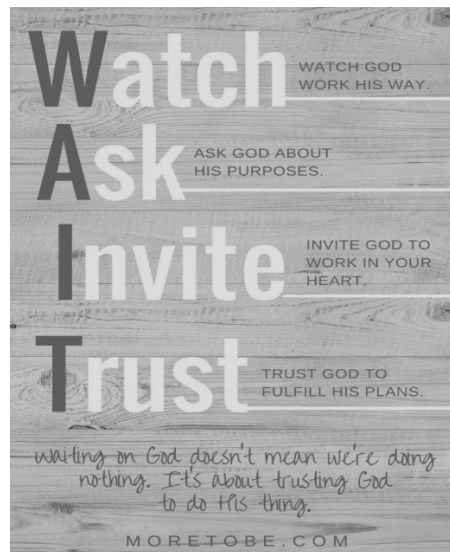 Watch
WATCH GOD
WORK HIS WAY.
Ask
ASK GOD ABOUT
HIS PURPOSES.
Invite
INVITE GOD TO
WORK IN YOUR
HEART.
Trust
TRUST GOD TO
FULFILL HIS PLANS.
waiting on God doesn't mean we're doing
nothing. It's about trusting God
to do His thing.
MORETOBE.COM